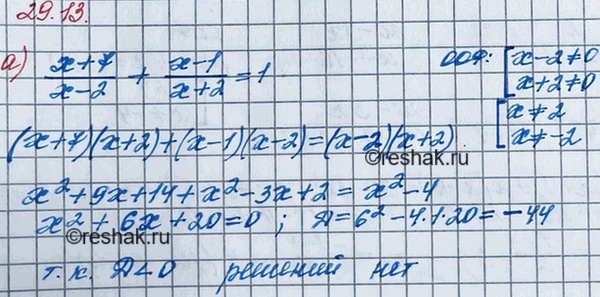 29.13.
а) (x+7)/(x-2) + (x-1)/(x+2) = 1
ООФ: [x-2≠0
x+2≠0
[x≠2
x≠-2
(x+7)(x+2)+(x-1)(x-2)=(x-2)(x+2)
©reshak.ru
x²+9x+14+x²-3x+2=x²-4
x²+6x+20=0; Д=6²-4·1·20=-44
©reshak.ru
т.к. Д<0 решений нет